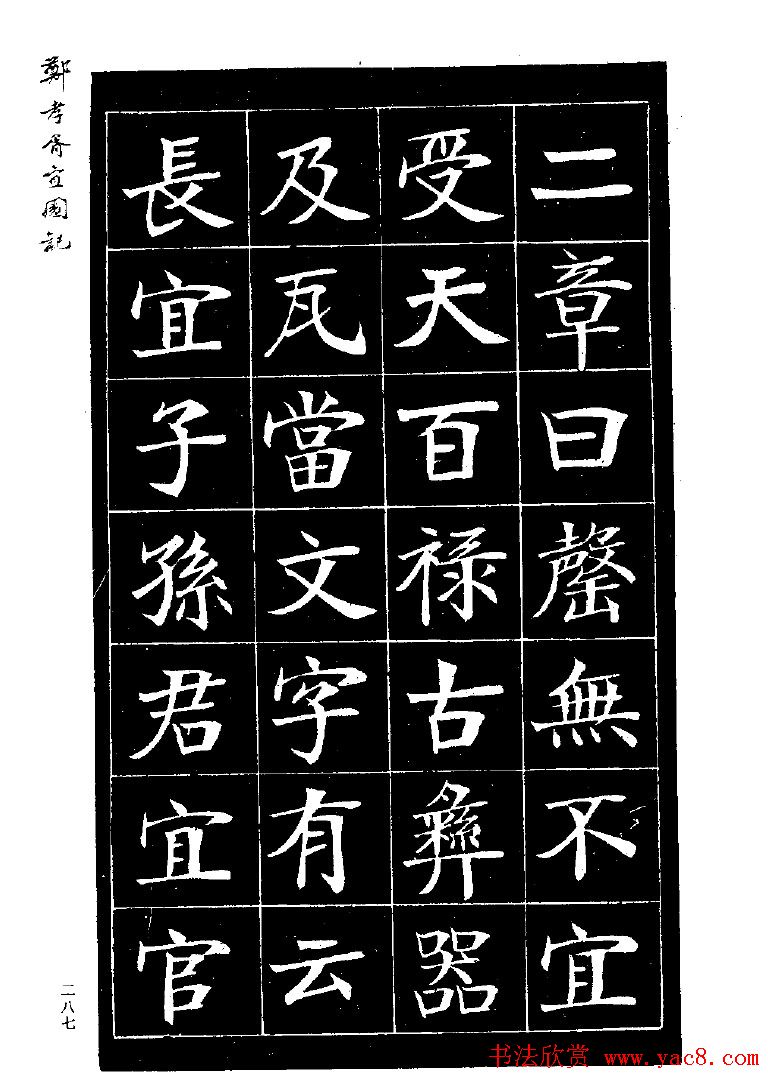 鄭孝胥宜園記
二章曰罄無不宜
受天百禄古彝器
及瓦當文字有云
長宜子孫君宜官
二八七
书法欣赏 www.yac8.com